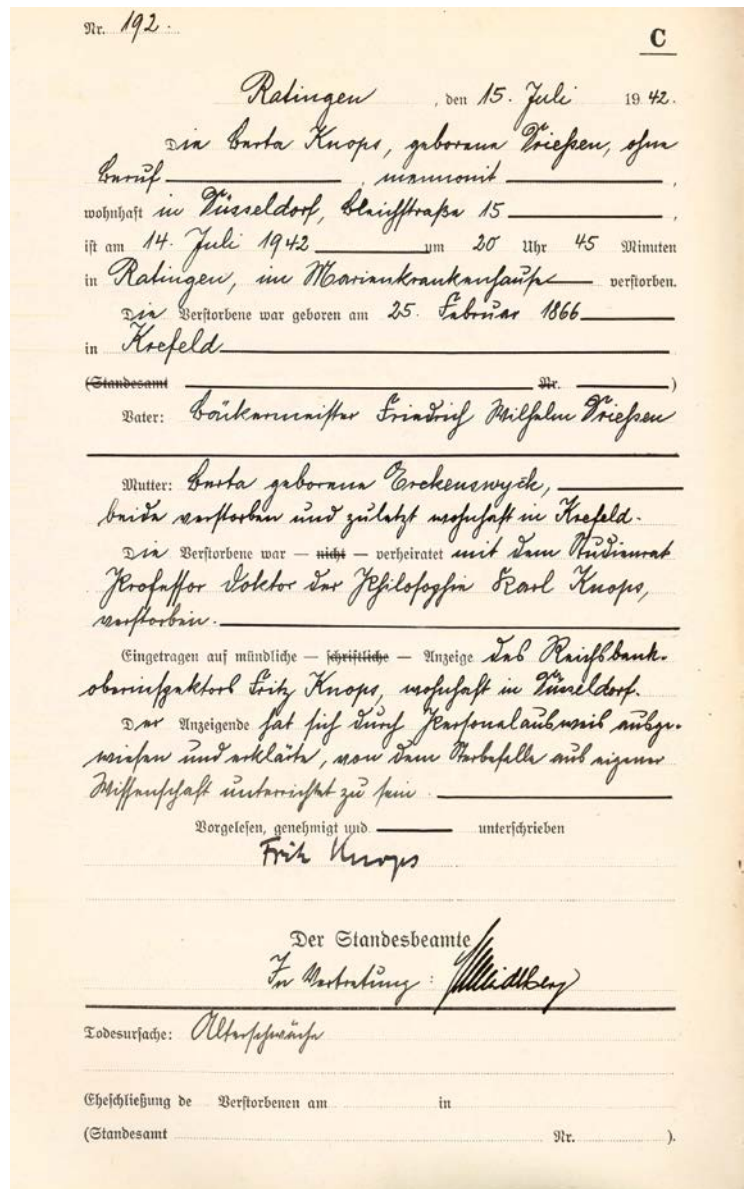 Nr. 192.
C
Ratingen, den 15. Juli 1942.
Die Berta Knops, geborene Drießen, ohne
Beruf, mennonit,
wohnhaft in Düsseldorf, Bleichstraße 15,
ist am 14. Juli 1942 um 20 Uhr 45 Minuten
in Ratingen, im Marienkrankenhause verstorben.
Die Verstorbene war geboren am 25. Februar 1866
in Krefeld
(Standesamt Nr. )
Vater: Bäckermeister Friedrich Wilhelm Drießen
Mutter: Berta geborene Erckenswyck,
beide verstorben und zuletzt wohnhaft in Krefeld.
Die Verstorbene war — nicht — verheiratet mit dem Studienrat
Professor Doktor der Philosophie Karl Knops,
verstorben.
Eingetragen auf mündliche — schriftliche — Anzeige des Reichsbank-
oberinspektors Fritz Knops, wohnhaft in Düsseldorf.
Der Anzeigende hat sich durch Personalausweis ausge-
wiesen und erklärte, von dem Sterbefalle aus eigener
Wissenschaft unterrichtet zu sein.
Vorgelesen, genehmigt und unterschrieben
Fritz Knops
Der Standesbeamte
In Vertretung:
Todesursache: Altersschwäche
Eheschließung de Verstorbenen am in
(Standesamt Nr. ).